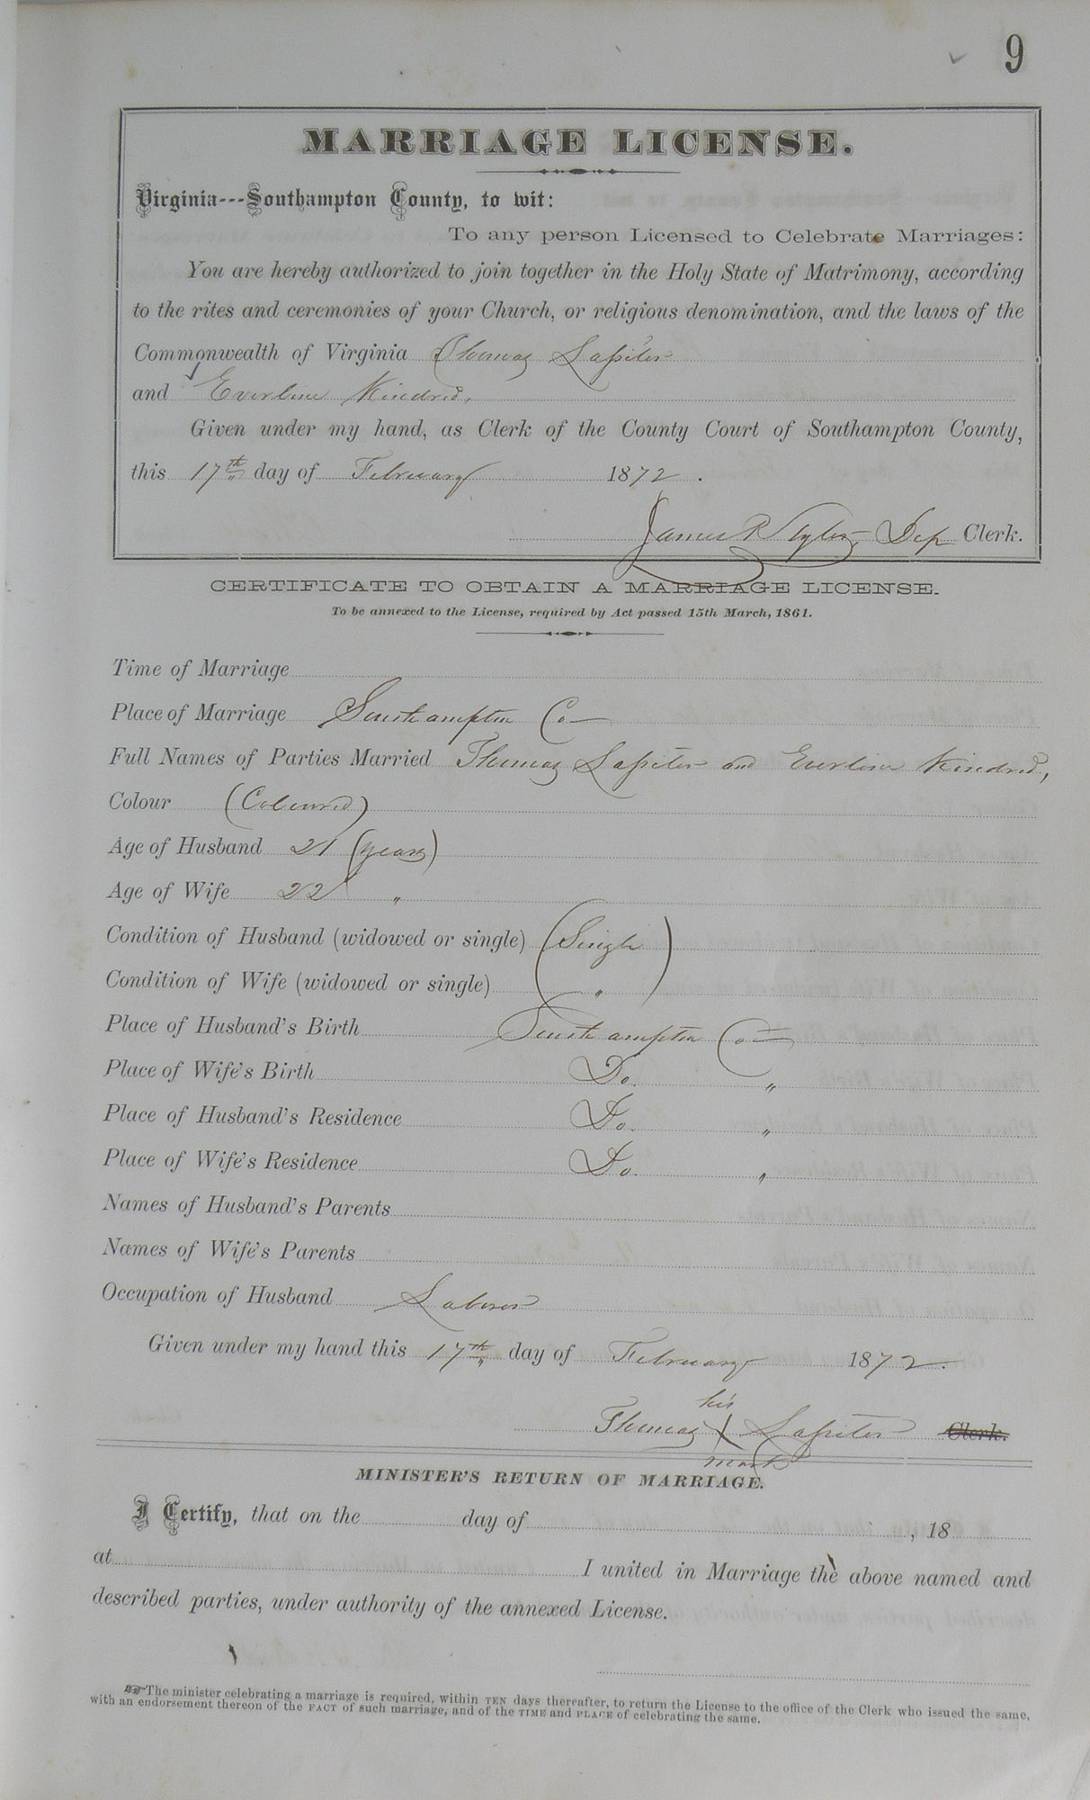 9
MARRIAGE LICENSE.
Virginia---Southampton County, to wit:
To any person Licensed to Celebrate Marriages:
You are hereby authorized to join together in the Holy State of Matrimony, according
to the rites and ceremonies of your Church, or religious denomination, and the laws of the
Commonwealth of Virginia Thomas Lassiter
and Everline Kindred,
Given under my hand, as Clerk of the County Court of Southampton County,
this 17th day of February 1872.
James R Tyler, Dep Clerk.
CERTIFICATE TO OBTAIN A MARRIAGE LICENSE.
To be annexed to the License, required by Act passed 15th March, 1861.
Time of Marriage
Place of Marriage Southampton Co
Full Names of Parties Married Thomas Lassiter and Everline Kindred,
Colour (Coloured)
Age of Husband 21 (years)
Age of Wife 22 "
Condition of Husband (widowed or single) (Single)
Condition of Wife (widowed or single) "
Place of Husband's Birth Southampton Co
Place of Wife's Birth Do. "
Place of Husband's Residence Do. "
Place of Wife's Residence Do. "
Names of Husband's Parents
Names of Wife's Parents
Occupation of Husband Laborer
Given under my hand this 17th day of February 1872.
his
Thomas X Lassiter Clerk.
mark
MINISTER'S RETURN OF MARRIAGE.
I Certify, that on the day of , 18
at I united in Marriage the above named and
described parties, under authority of the annexed License.
The minister celebrating a marriage is required, within TEN days thereafter, to return the License to the office of the Clerk who issued the same,
with an endorsement thereon of the FACT of such marriage, and of the TIME and PLACE of celebrating the same.